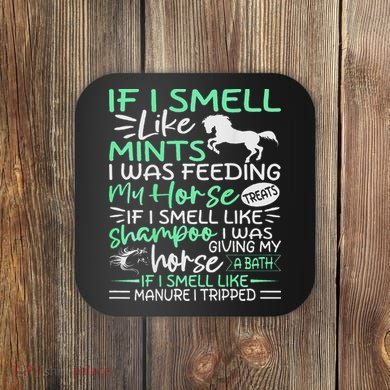 IF I SMELL
Like
MINTS
I WAS FEEDING
My Horse TREATS
IF I SMELL LIKE
shampoo I WAS
GIVING MY
horse A BATH
IF I SMELL LIKE
MANURE I TRIPPED